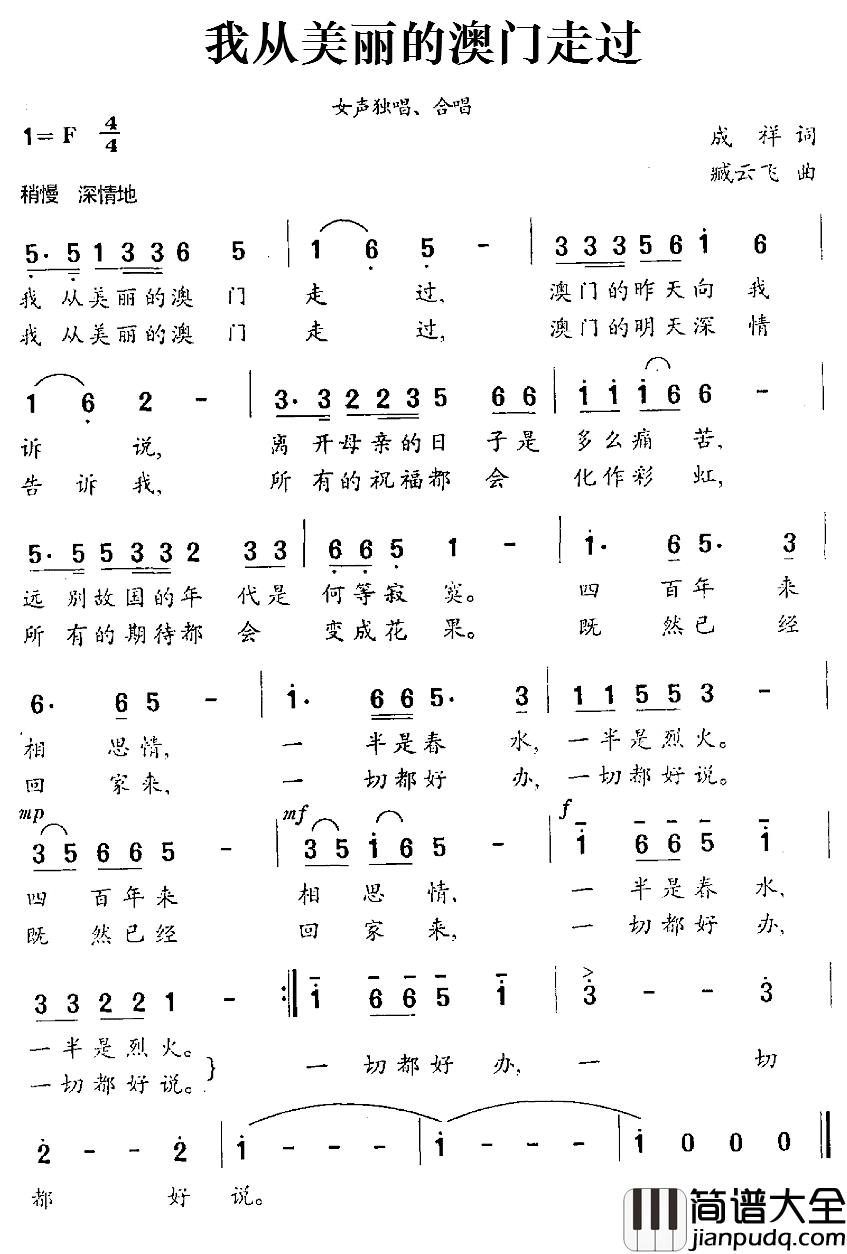 我从美丽的澳门走过
女声独唱、合唱
1=F 4/4
成祥 词
臧云飞 曲
稍慢 深情地
5. 5 1 3 3 6 5 | 1 6 5 - | 3 3 3 5 6 1 6 |
我从美丽的澳门走过, 澳门的昨天向我
我从美丽的澳门走过, 澳门的明天深情
1 6 2 - | 3. 3 2 2 3 5 6 6 | 1 1 1 6 6 - |
诉说, 离开母亲的日子是多么痛苦,
告诉我, 所有的祝福都会化作彩虹,
5. 5 5 3 3 2 3 3 | 6 6 5 1 - | 1. 6 5. 3 |
远别故国的年代是何等寂寞。 四百年来
所有的期待都会变成花果。 既然已经
6. 6 5 - | 1. 6 6 5. 3 | 1 1 5 5 3 - |
相思情, 一半是春水, 一半是烈火。
回家来, 一切都好办, 一切都好说。
mp mf f
3 5 6 6 5 - | 3 5 1 6 5 - | 1 6 6 5 1 |
四百年来 相思情, 一半是春水,
既然已经 回家来, 一切都好办,
3 3 2 2 1 - :| 1 6 6 5 1 | 3 - - 3 |
一半是烈火。
一切都好说。} 一切都好办, 一切
2 - - 2 | 1 - - - | 1 - - - | 1 0 0 0 ‖
都好说。
简谱大全
jianpudq.com